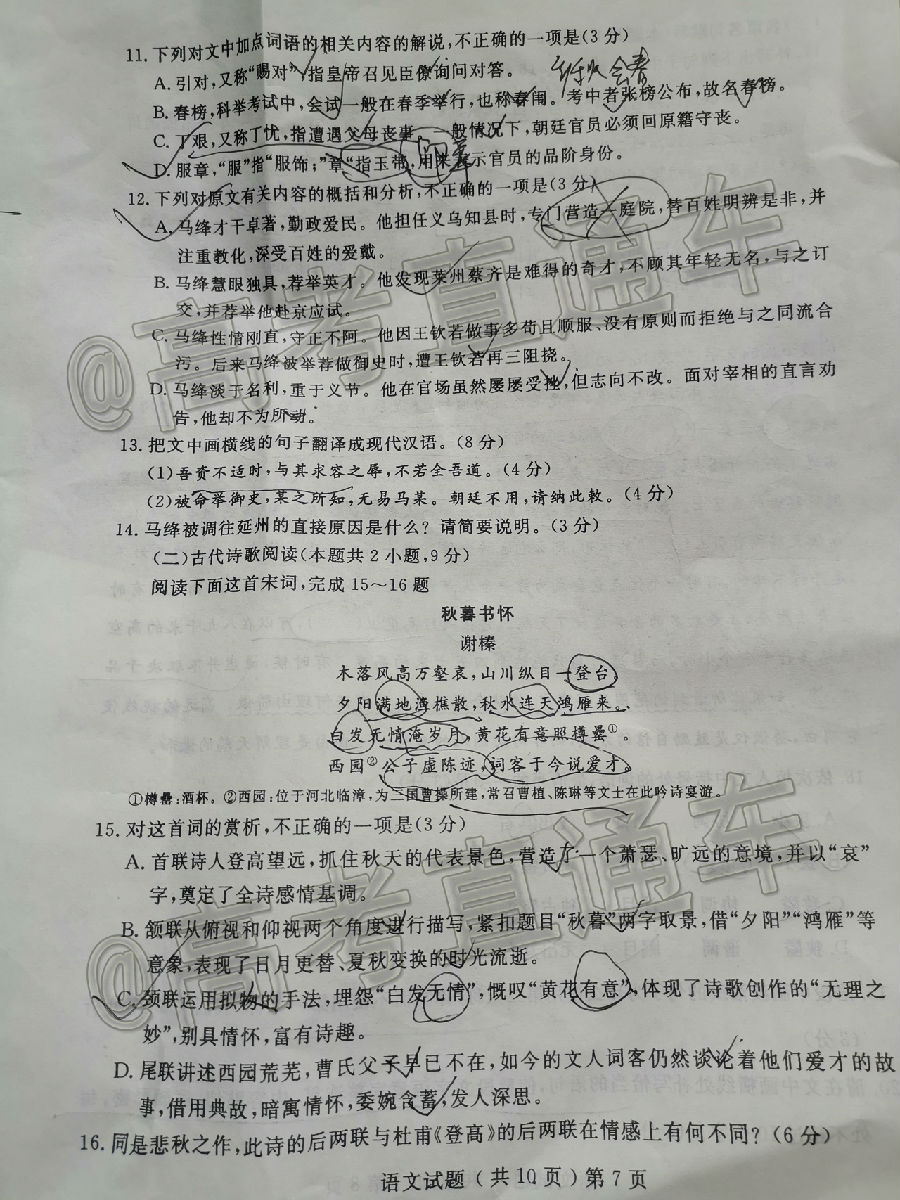 11. 下列对文中加点词语的相关内容的解说,不正确的一项是(3分)
A. 引对,又称“赐对”,指皇帝召见臣僚询问对答。
B. 春榜,科举考试中,会试一般在春季举行,也称春闱。考中者张榜公布,故名春榜。
C. 丁艰,又称丁忧,指遭遇父母丧事,一般情况下,朝廷官员必须回原籍守丧。
D. 服章,“服”指“服饰;”章“指玉神,用来表示官员的品阶身份。
12. 下列对原文有关内容的概括和分析,不正确的一项是(3分)
A. 马绛才干卓著,勤政爱民。他担任义乌知县时,专门营造大庭院,替百姓明辨是非,并
注重教化,深受百姓的爱戴。
B. 马绛慧眼独具,荐举英才。他发现莱州蔡齐是难得的奇才,不顾其年轻无名,与之订
交,并荐举他赴京应试。
C. 马绛性情刚直,守正不阿。他因王钦若做事多苟且顺服、没有原则而拒绝与之同流合
污。后来马绛被举荐做御史时,遭王钦若再三阻挠。
D. 马绛淡于名利,重于义节。他在官场虽然屡屡受挫,但志向不改。面对宰相的直言劝
告,他却不为所动。
13. 把文中画横线的句子翻译成现代汉语。(8分)
(1)吾资不适时,与其求容之辱,不若全吾道。(4分)
(2)被命举御史,某之所知,无易马某。朝廷不用,请纳此敕。(4分)
14. 马绛被调往延州的直接原因是什么?请简要说明。(3分)
(二)古代诗歌阅读(本题共2小题,9分)
阅读下面这首宋词,完成15~16题
秋暮书怀
谢榛
木落风高万壑哀,山川纵目一登台
夕阳满地渔樵散,秋水连天鸿雁来。
白发无情淹岁月,黄花有意照樽罍①。
西园②公子虚陈迹,词客于今说爱才。
①樽罍:酒杯。②西园:位于河北临漳,为三国曹操所建,常召曹植、陈琳等文士在此吟诗宴游。
15. 对这首词的赏析,不正确的一项是(3分)
A. 首联诗人登高望远,抓住秋天的代表景色,营造了一个萧瑟、旷远的意境,并以“哀”
字,奠定了全诗感情基调。
B. 颔联从俯视和仰视两个角度进行描写,紧扣题目“秋暮”两字取景,借“夕阳”“鸿雁”等
意象,表现了日月更替、夏秋变换的时光流逝。
C. 颈联运用拟物的手法,埋怨“白发无情”,慨叹“黄花有意”,体现了诗歌创作的“无理之
妙”,别具情怀,富有诗趣。
D. 尾联讲述西园荒芜,曹氏父子早已不在,如今的文人词客仍然谈论着他们爱才的故
事,借用典故,暗寓情怀,委婉含蓄,发人深思。
16. 同是悲秋之作,此诗的后两联与杜甫《登高》的后两联在情感上有何不同?(6分)
语文试题(共10页)第7页
@高考直通车
@高考直通车